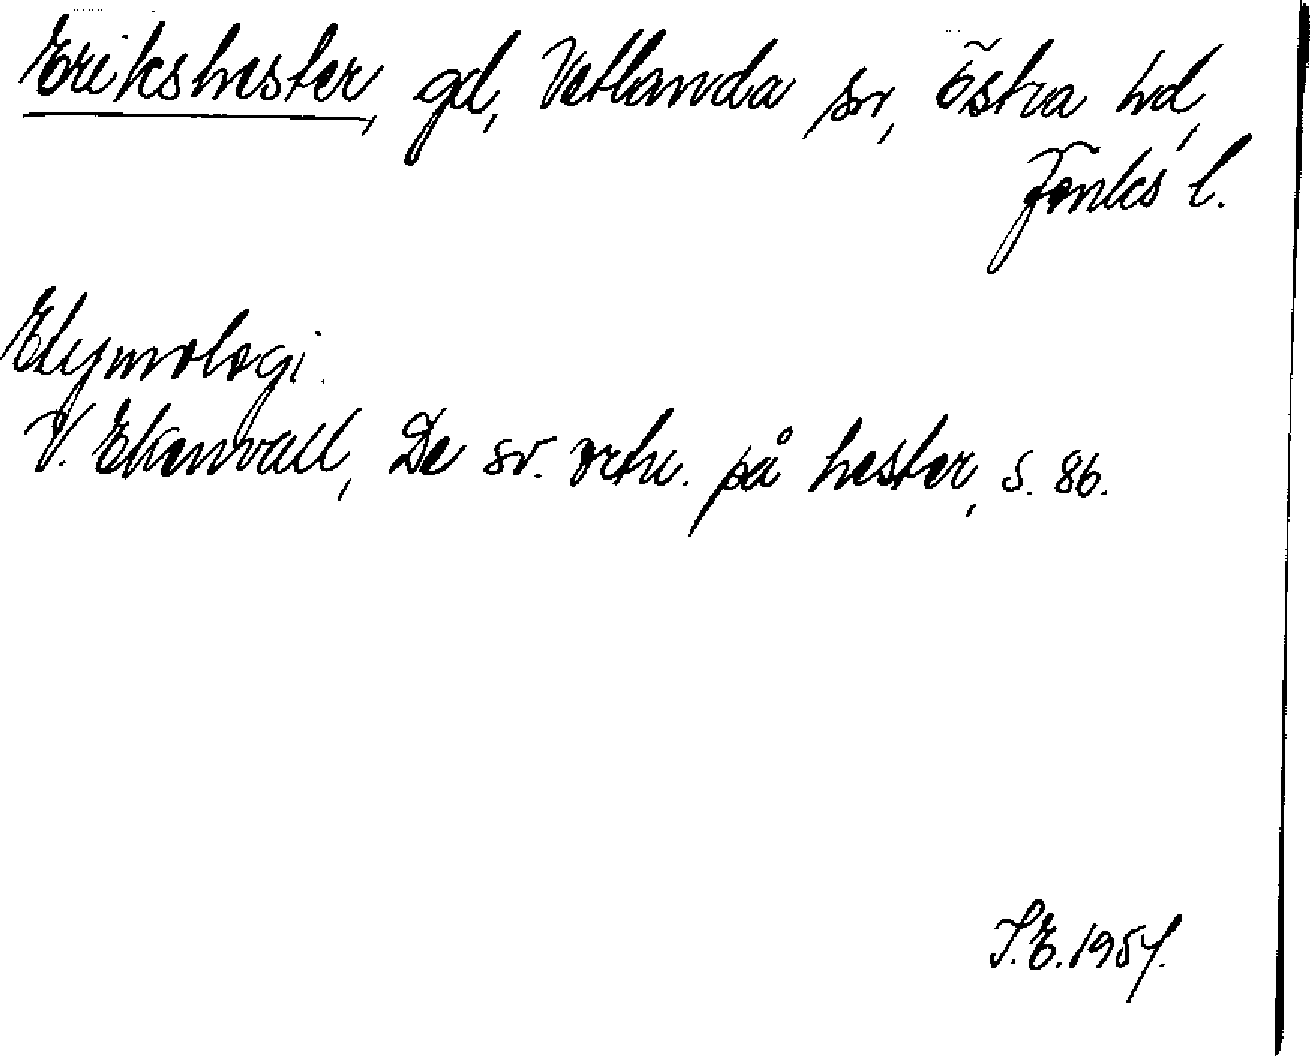 Erikshester, gd, Vetlanda sn, Östra hd,
Jönks l.
Etymologi.
V. Ekenvall, De sv. ortn. på hester, s. 86.
I.E. 1957.